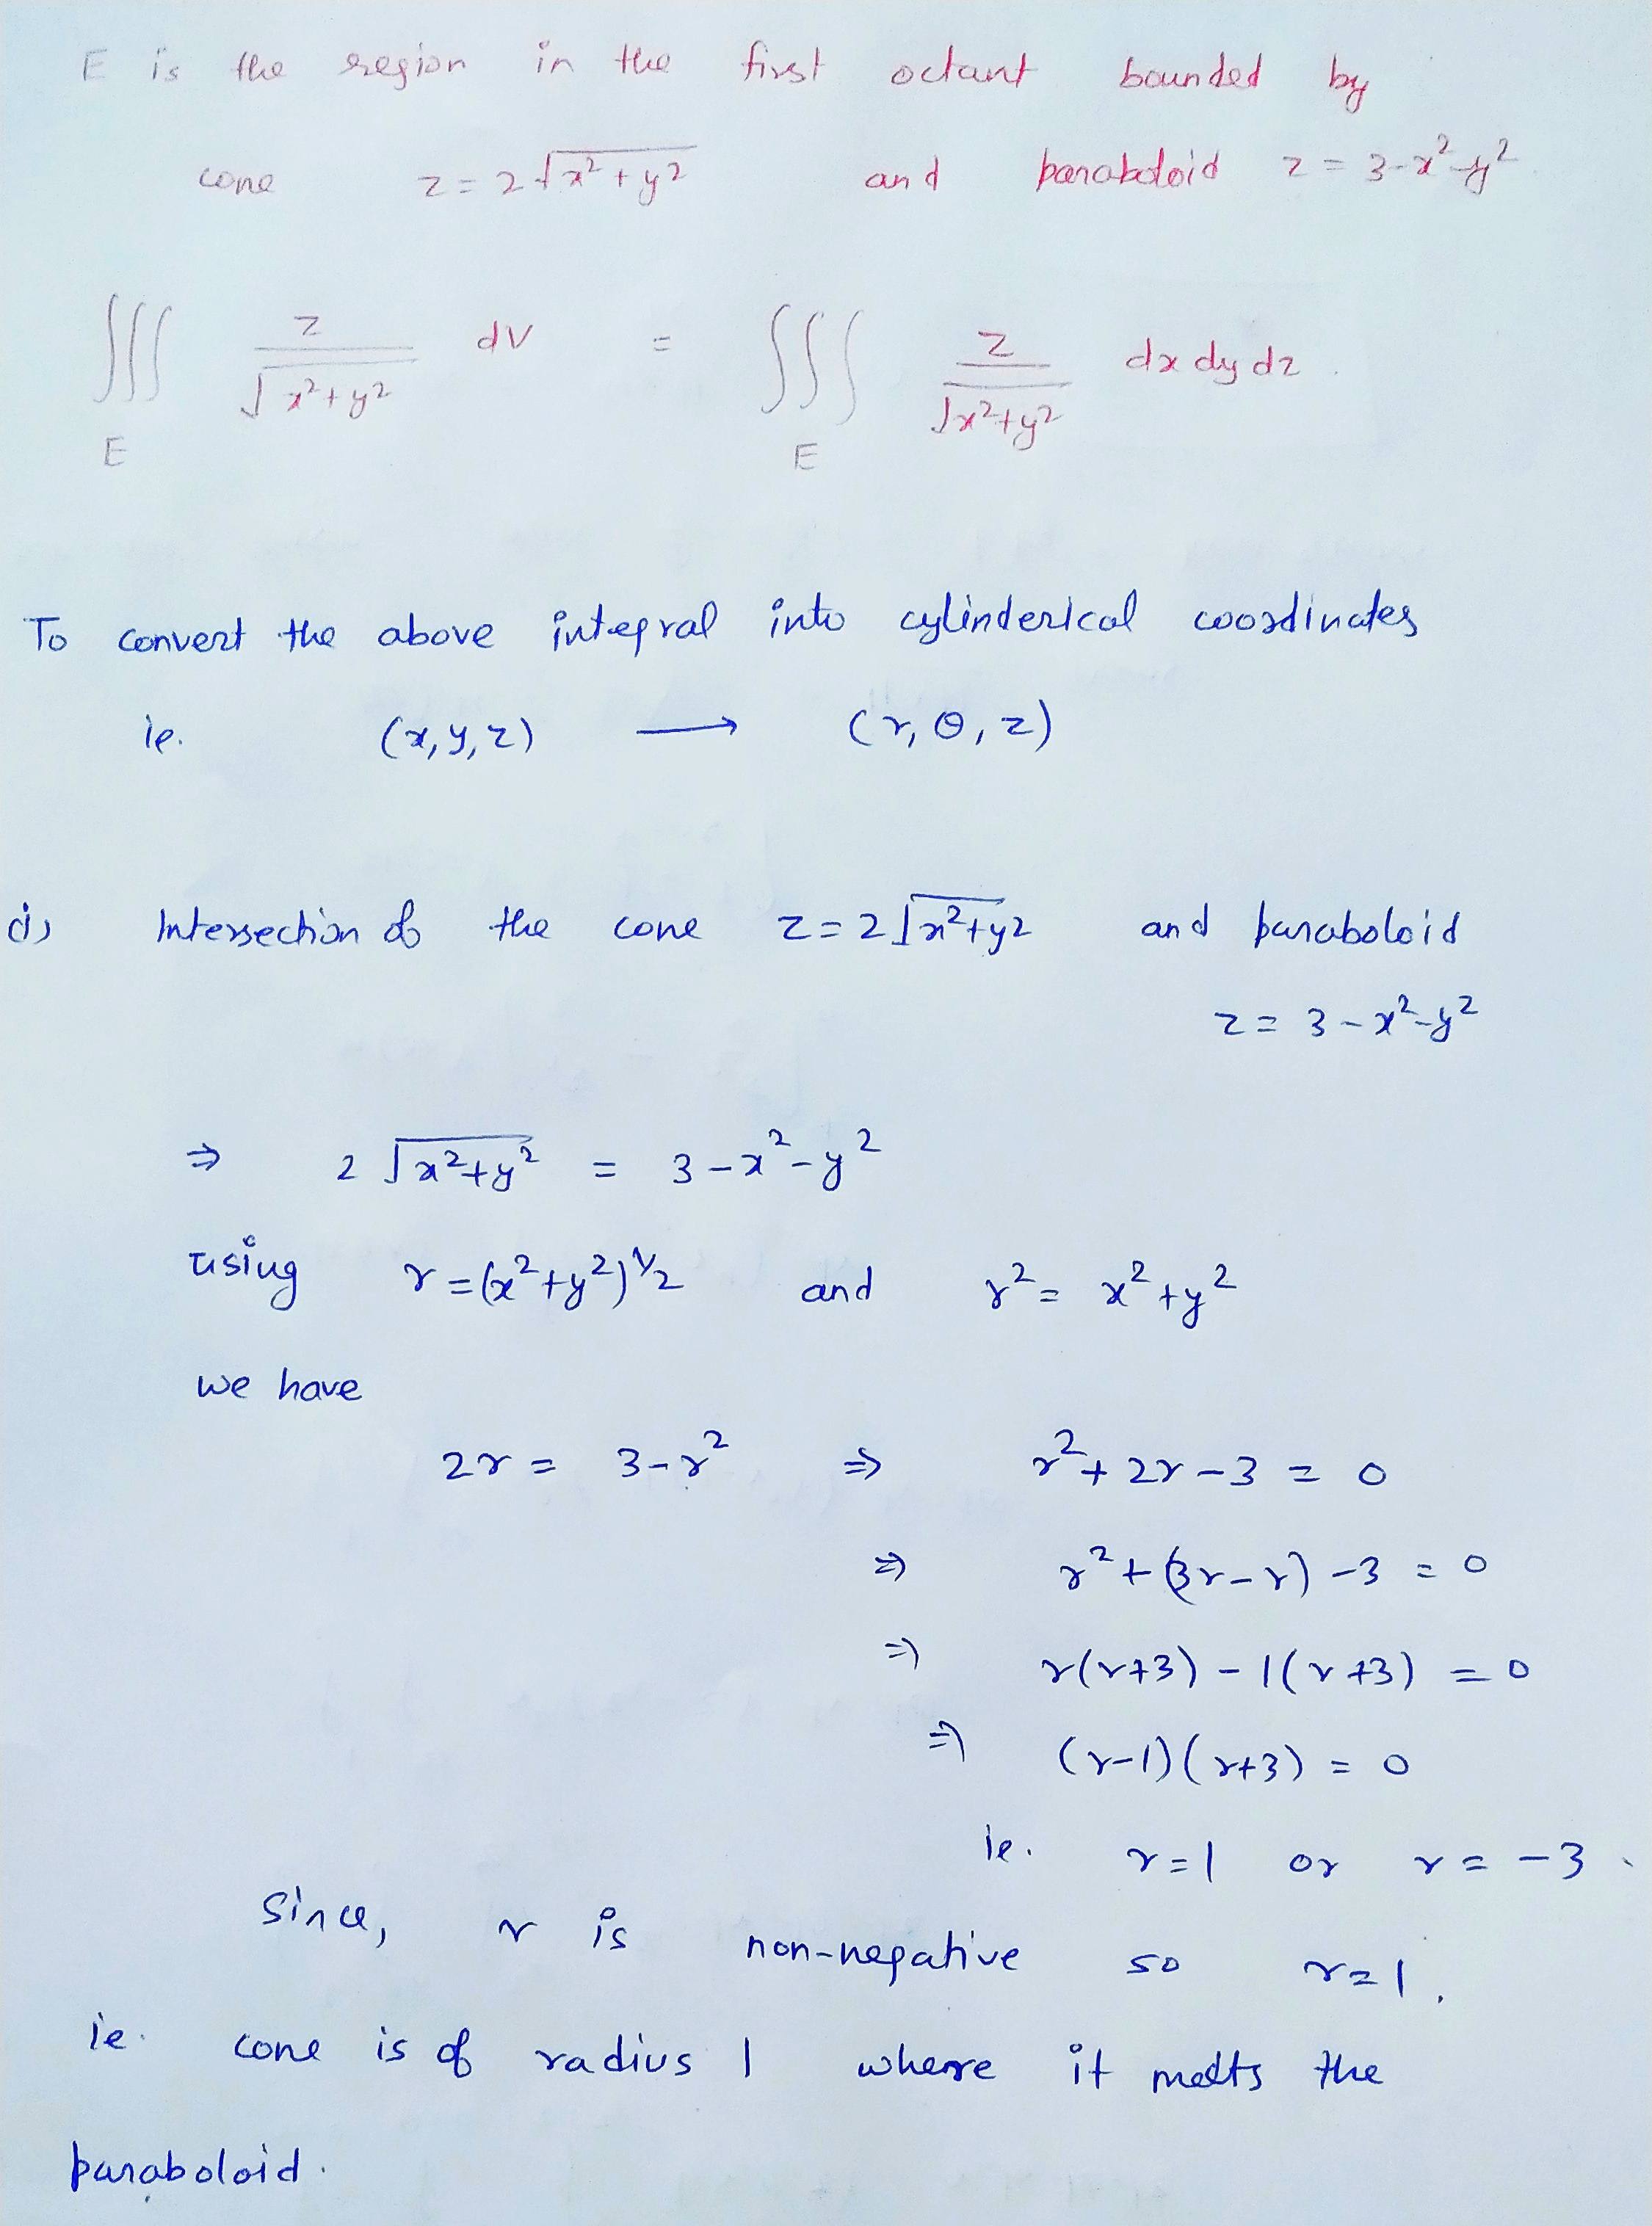 E is the region in the first octant bounded by
cone z = 2√(x²+y²) and paraboloid z = 3-x²-y²
∭_E z/√(x²+y²) dV = ∭_E z/√(x²+y²) dx dy dz.
To convert the above integral into cylinderical coordinates
ie. (x, y, z) → (r, θ, z)
Intersection of the cone z = 2√(x²+y²) and paraboloid
z = 3-x²-y²
⇒ 2√(x²+y²) = 3-x²-y²
using r = (x²+y²)^1/2 and r² = x²+y²
we have
2r = 3-r² ⇒ r²+2r-3 = 0
⇒ r²+(3r-r)-3 = 0
⇒ r(r+3)-1(r+3) = 0
⇒ (r-1)(r+3) = 0
ie. r=1 or r = -3.
Since, r is non-negative so r=1.
ie. cone is of radius 1 where it meets the
paraboloid.